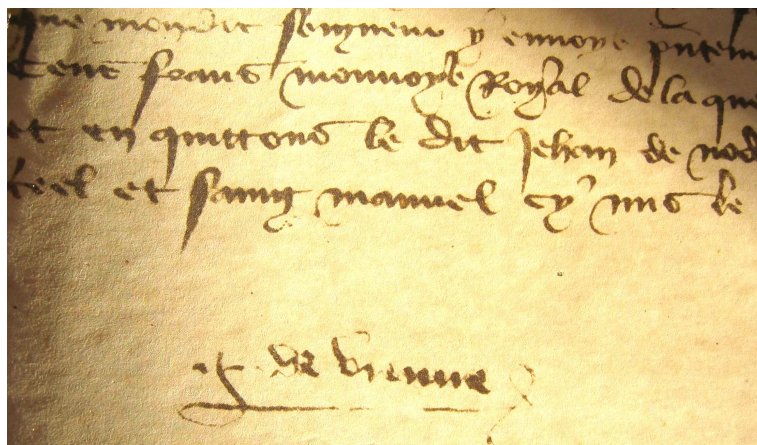 que mondit seigneur y envoye p̄ntem
Cens frans monnoye Royal de la que
et en quittons le dit Jehan de nod
seel et saing manuel cy mis le
de vienne